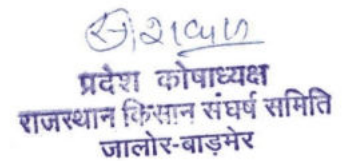 प्रदेश कोषाध्यक्ष
राजस्थान किसान संघर्ष समिति
जालोर-बाड़मेर